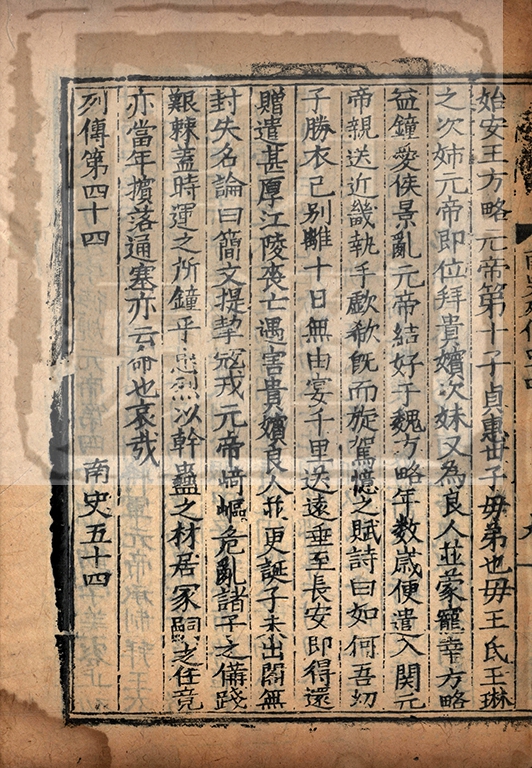 始安王方略元帝第十子貞惠世子母弟也母王氏王琳
之次姉元帝即位拜貴嬪次妹又為良人並蒙寵幸方略
益鐘愛侯景亂元帝結好于魏方略年數歲便遣入関元
帝親送近畿執手歔欷旣而旋駕憶之賦詩曰如何吾㓜
子勝衣已别離十日無由宴千里送遠垂至長安即得還
贈遣甚厚江陵喪亡遇害貴嬪良人並更誕子未出閤無
封失名論曰簡文提挈寇戎元帝崎嶇危亂諸子之備踐
艱棘蓋時運之所鐘乎忠烈以幹蠱之材居冢嗣之任竟
亦當年擯落通塞亦云命也哀哉
列傳第四十四 南史五十四